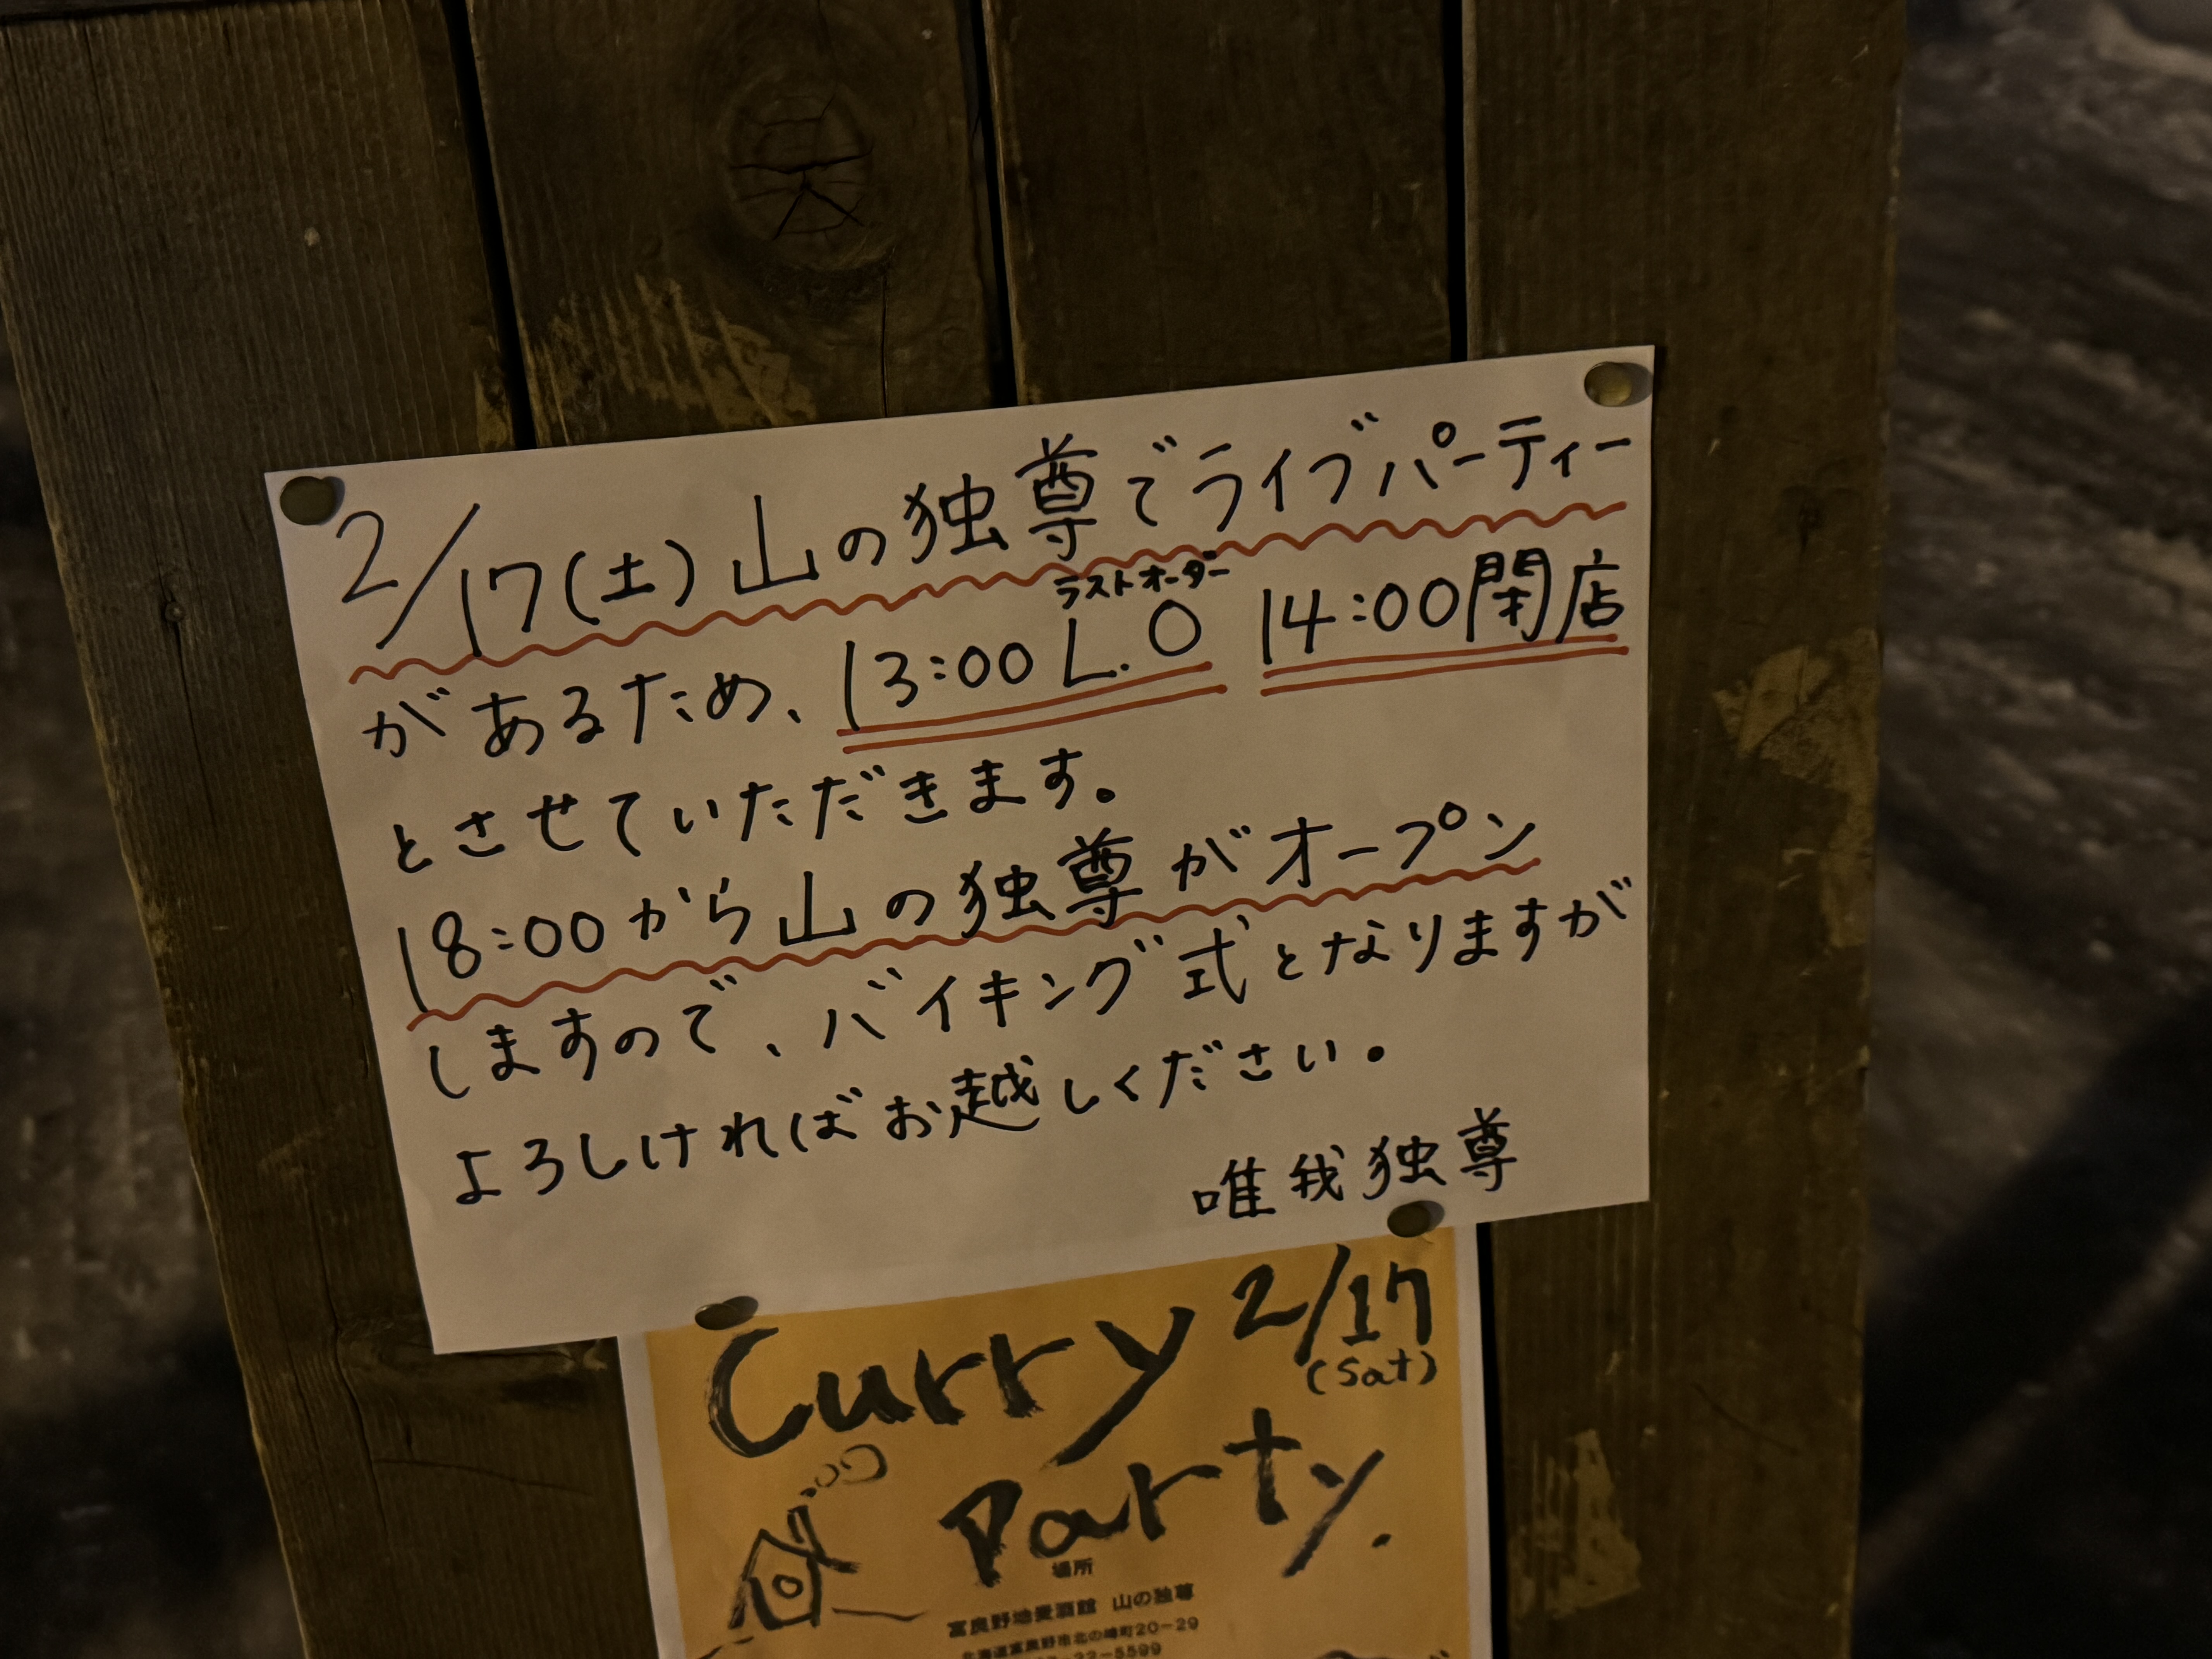 2/17(土)山の独尊でライブパーティー
ラストオーダー
があるため、13:00 L.O 14:00閉店
とさせていただきます。
18:00から山の独尊がオープン
しますので、バイキング式となりますが
よろしければお越しください。
唯我独尊
Curry 2/17
(Sat)
Party.
場所
富良野地麦酒館 山の独尊
北海道富良野市北の峰町20-29
22-5599